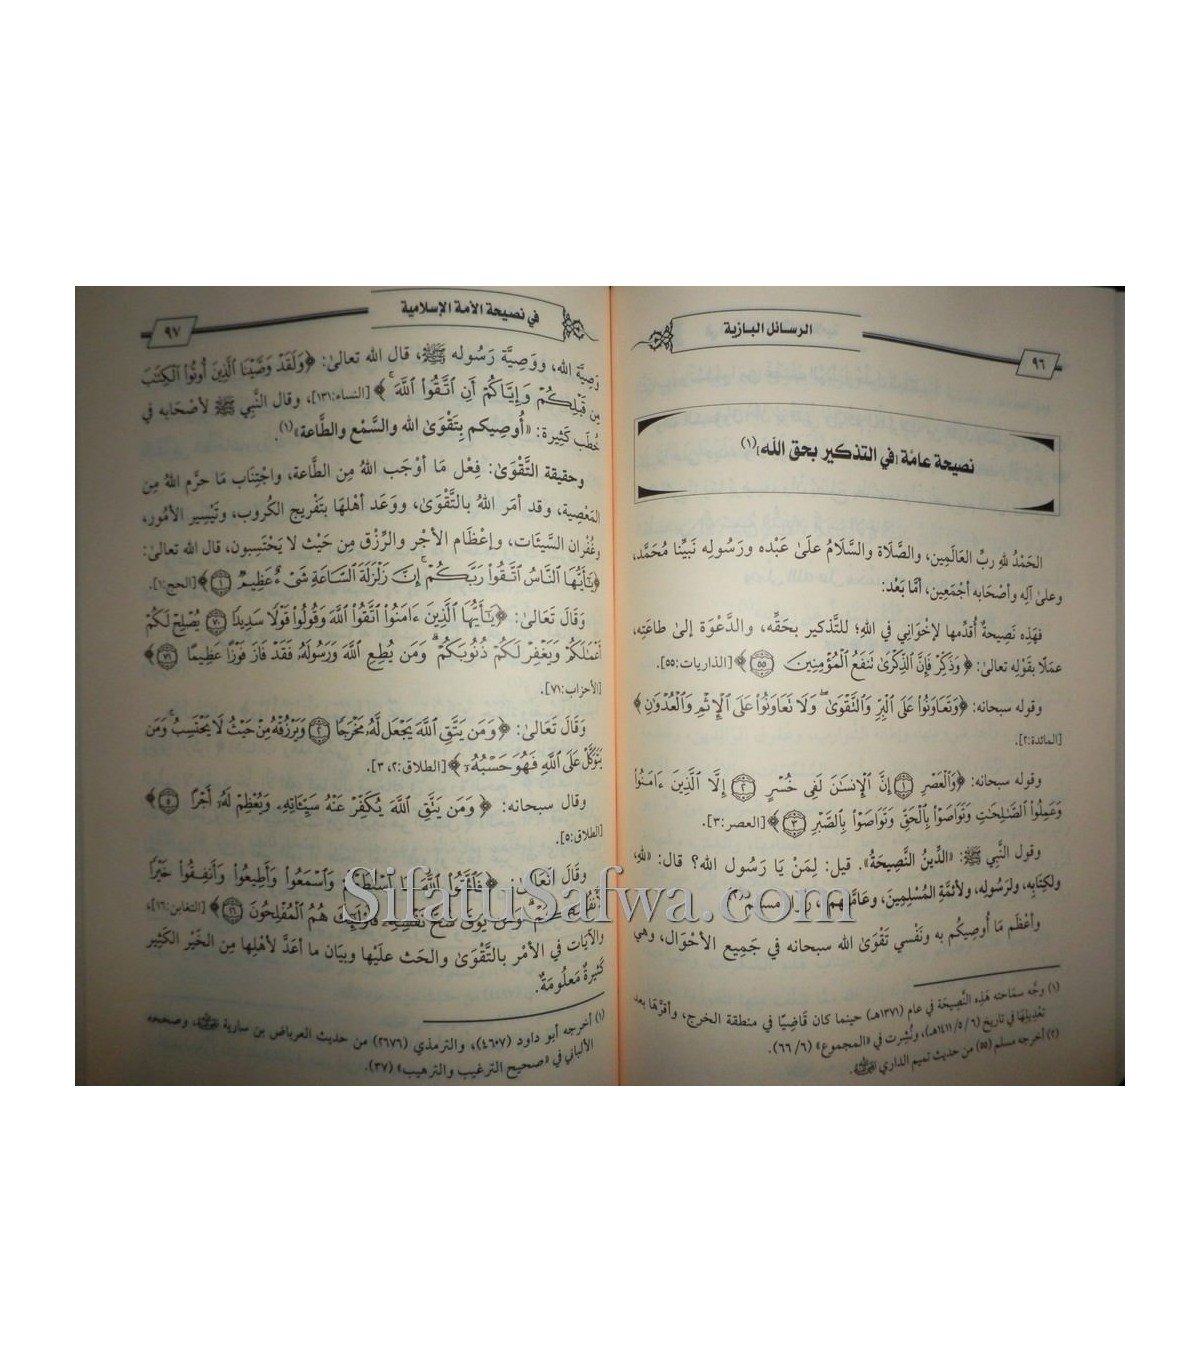 الرسائل البازية
٩٦
نصيحة عامة [في التذكير بحق الله](١)
الحَمْدُ للهِ ربِّ العَالَمِين، والصَّلَاة والسَّلَامُ علىٰ عَبْده ورَسُولِه نَبيِّنا مُحَمَّد،
وعلىٰ آلِه وأصْحَابه أجْمَعِين، أمَّا بَعْد:
فهَذِه نَصِيحةٌ أُقدِّمها لإخْوَاني في اللهِ؛ للتَّذكير بحَقِّه، والدَّعْوَة إلىٰ طاعَتِه،
عملًا بقَوْلِه تعالىٰ: ﴿وَذَكِّرْ فَإِنَّ ٱلذِّكْرَىٰ تَنفَعُ ٱلْمُؤْمِنِينَ ۝٥٥﴾ [الذاريات:٥٥].
وقوله سبحانه: ﴿وَتَعَاوَنُوا۟ عَلَى ٱلْبِرِّ وَٱلتَّقْوَىٰ ۖ وَلَا تَعَاوَنُوا۟ عَلَى ٱلْإِثْمِ وَٱلْعُدْوَٰنِ﴾
[المائدة:٢].
وقوله سبحانه: ﴿وَٱلْعَصْرِ ۝١ إِنَّ ٱلْإِنسَٰنَ لَفِى خُسْرٍ ۝٢ إِلَّا ٱلَّذِينَ ءَامَنُوا۟
وَعَمِلُوا۟ ٱلصَّٰلِحَٰتِ وَتَوَاصَوْا۟ بِٱلْحَقِّ وَتَوَاصَوْا۟ بِٱلصَّبْرِ ۝٣﴾ [العصر:٣].
وقول النَّبي ﷺ: «الدِّينُ النَّصِيحَةُ». قيل: لِمَنْ يَا رَسُول الله؟ قال: «للهِ،
ولكِتَابِه، ولرَسُولِه، ولأئمَّةِ المُسْلِمِين، وعَامَّتهم»، رواه مسلم(٢).
وأعْظَم مَا أُوصِيكُم به ونَفْسي تَقْوَىٰ الله سبحانه في جَمِيع الأحْوَال، وهي
(١) وجَّه سمَاحته هَذِه النَّصِيحَة في عام (١٣٧١هـ) حينما كان قَاضِيًا في منطقة الخرج، وأقرَّها بعد
تعْدِيلِها في تاريخ (١٤١١/٥/٦هـ)، ونُشِرت في «المجموع» (٦/ ٦٦).
(٢) أخرجه مسلم (٥٥) من حديث تميم الداري رضي الله عنه.
في نصيحة الأمة الإسلامية
٩٧
وَصِيَّة الله، ووَصِيَّة رَسُوله ﷺ، قال الله تعالىٰ: ﴿وَلَقَدْ وَصَّيْنَا ٱلَّذِينَ أُوتُوا۟ ٱلْكِتَٰبَ
مِن قَبْلِكُمْ وَإِيَّاكُمْ أَنِ ٱتَّقُوا۟ ٱللَّهَ ۚ﴾ [النساء:١٣١]، وقال النَّبي ﷺ لأصْحَابه في
خُطَب كَثِيرة: «أُوصِيكم بِتَقْوَىٰ الله والسَّمْع والطَّاعة»(١).
وحقيقة التَّقْوَىٰ: فِعْل مَا أوْجَب اللهُ مِن الطَّاعة، واجْتِنَاب مَا حرَّم اللهُ مِن
المَعْصِية، وقد أمَر اللهُ بالتَّقْوَىٰ، ووَعَد أهْلَها بتَفْريج الكُروب، وتَيْسِير الأمُور،
وغُفْران السَّيئَات، وإعْظَام الأجْر والرِّزْق مِن حَيْث لا يَحْتَسِبون، قال الله تعالىٰ:
﴿يَٰٓأَيُّهَا ٱلنَّاسُ ٱتَّقُوا۟ رَبَّكُمْ ۚ إِنَّ زَلْزَلَةَ ٱلسَّاعَةِ شَىْءٌ عَظِيمٌ ۝١﴾ [الحج:١].
وَقَالَ تَعَالَىٰ: ﴿يَٰٓأَيُّهَا ٱلَّذِينَ ءَامَنُوا۟ ٱتَّقُوا۟ ٱللَّهَ وَقُولُوا۟ قَوْلًا سَدِيدًا ۝٧٠ يُصْلِحْ لَكُمْ
أَعْمَٰلَكُمْ وَيَغْفِرْ لَكُمْ ذُنُوبَكُمْ ۗ وَمَن يُطِعِ ٱللَّهَ وَرَسُولَهُۥ فَقَدْ فَازَ فَوْزًا عَظِيمًا ۝٧١﴾
[الأحزاب:٧١].
وَقَالَ تَعَالَىٰ: ﴿وَمَن يَتَّقِ ٱللَّهَ يَجْعَل لَّهُۥ مَخْرَجًا ۝٢ وَيَرْزُقْهُ مِنْ حَيْثُ لَا يَحْتَسِبُ ۚ وَمَن
يَتَوَكَّلْ عَلَى ٱللَّهِ فَهُوَ حَسْبُهُۥٓ﴾ [الطلاق:٢، ٣].
وقال سبحانه: ﴿وَمَن يَتَّقِ ٱللَّهَ يُكَفِّرْ عَنْهُ سَيِّـَٔاتِهِۦ وَيُعْظِمْ لَهُۥٓ أَجْرًا ۝٥﴾
[الطلاق:٥].
وقَالَ تَعَالَىٰ: ﴿فَٱتَّقُوا۟ ٱللَّهَ مَا ٱسْتَطَعْتُمْ وَٱسْمَعُوا۟ وَأَطِيعُوا۟ وَأَنفِقُوا۟ خَيْرًا
لِّأَنفُسِكُمْ ۗ وَمَن يُوقَ شُحَّ نَفْسِهِۦ فَأُو۟لَٰٓئِكَ هُمُ ٱلْمُفْلِحُونَ ۝١٦﴾ [التغابن:١٦]،
والآيَات في الأمْر بالتَّقْوَىٰ والحَث علَيْها وبيَان ما أعَدَّ لأهْلِها مِن الخَيْر الكَثِير
كَثِيرةٌ مَعلُومَةٌ.
(١) أخرجه أبو داود (٤٦٠٧)، والترمذي (٢٦٧٦) من حديث العرباض بن سارية رضي الله عنه، وصححه
الألباني في «صحيح الترغيب والترهيب» (٣٧).
SifatuSafwa.com